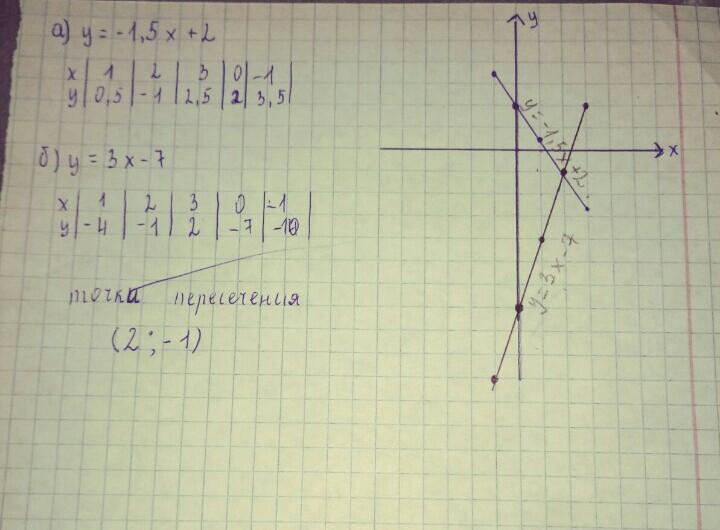 а) y = -1,5x + 2
x | 1 | 2 | 3 | 0 | -1 |
y | 0,5 | -1 | 2,5 | 2 | 3,5 |
б) y = 3x - 7
x | 1 | 2 | 3 | 0 | -1 |
y | -4 | -1 | 2 | -7 | -10 |
точка пересечения
(2 ; -1)
y
x
y = -1,5x + 2
y = 3x - 7